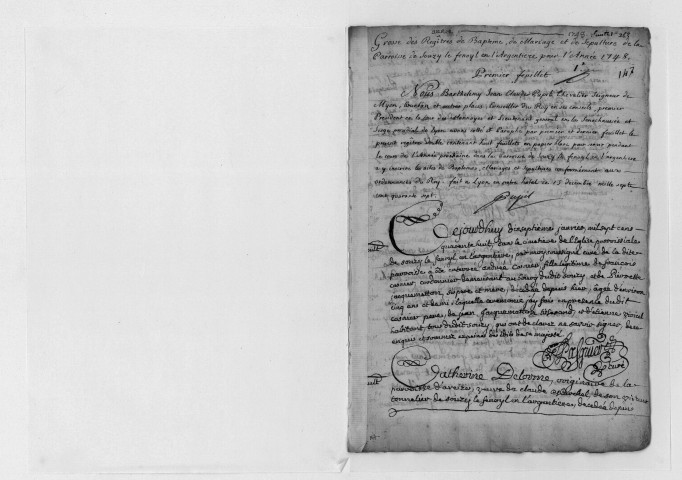 Grosse des Registres de Baptême, de Mariage et de Sepulture de la
Parroisse de Souzy le fenoyl en l'Argentiere pour l'Année 1748.
Premier feuillet 1er 147
Nous Barthelemy Jean Claude Pupil Chevalier Seigneur de
Myon, et autres places, Conseiller du Roy en ses conseils, premier
President en la Cour des Monnoyes et Lieutenant general en la Senechaussée et
Siege presidial de Lyon avons cotté et Paraphé par premier et dernier feuillet le
present registre contenant huit feuillets en papier blanc pour servir pendant
le cours de l'Année prochaine dans la Parroisse de Souzy le fenoyl en l'argentiere
a y ecrire les actes de Baptemes, Mariages et sepultures conformement aux
ordonnances du Roy. fait a Lyon en notre hotel le 13 decembre mille sept
cent quarante sept.
Pupil
Cejourdhuy dixseptieme janvier mil sept cens
quarante huit, dans le cimetiere de l'Eglise parroissiale
de souzy le fenoyl en l'argentiere, par moy soussigné curé de la dite
parroisse a été enterrée andrée fille legitime de françois
cordonnier demeurant au bourg dudit souzy, et de Pierrette
jacquemetton, ses pere et mere, decedée depuis hier, agée d'environ
cinq ans et demi; a laquelle ceremonie jay fait en presence dudit
pere, de jean jacquemetton tisserand, et d'etienne
habitant, tous dudit souzy, qui ont declaré ne savoir signer, de ce
enquis et sommés, suivant les edits de sa majesté
curé
Catherine Delorme, originaire de la
parroisse d'aveize, veuve de claude de son vivant
tonnelier de souzy le fenoyl en l'argentiere, decedée depuis